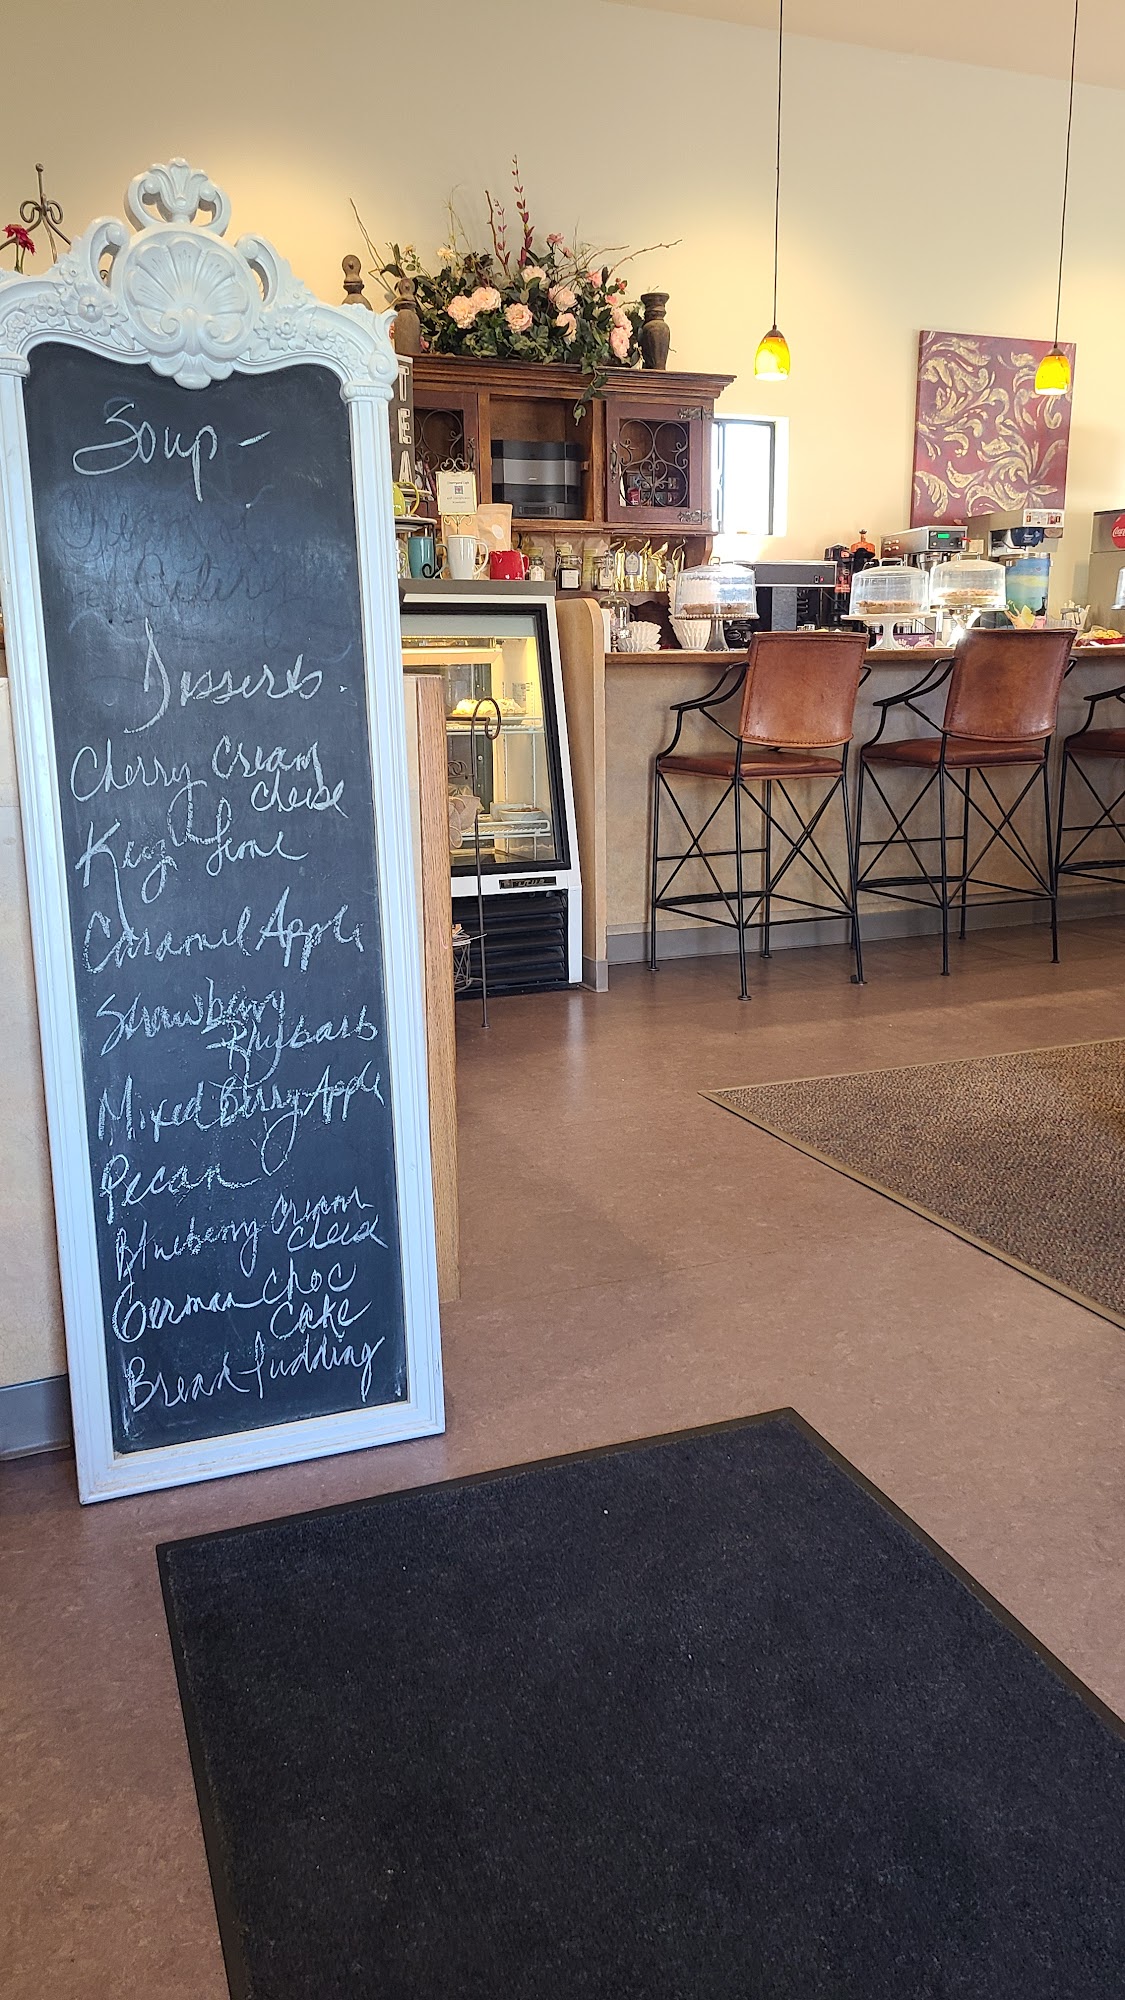 Soup -
Desserts
Cherry Cream
cheese
Key Lime
Caramel Apple
Strawberry
Rhubarb
Mixed Berry Apple
Pecan
Blueberry cream
cheese
German choc
cake
Bread Pudding
TEA
TRUE